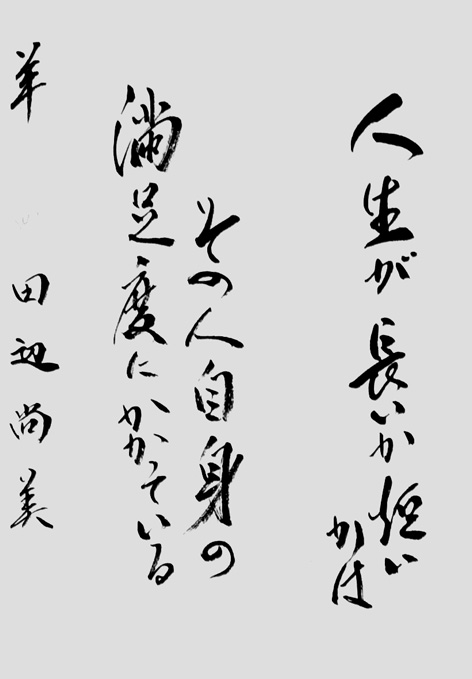 人生が長いか短い
かは
その人自身の
満足度にかかっている
羊 田辺尚美